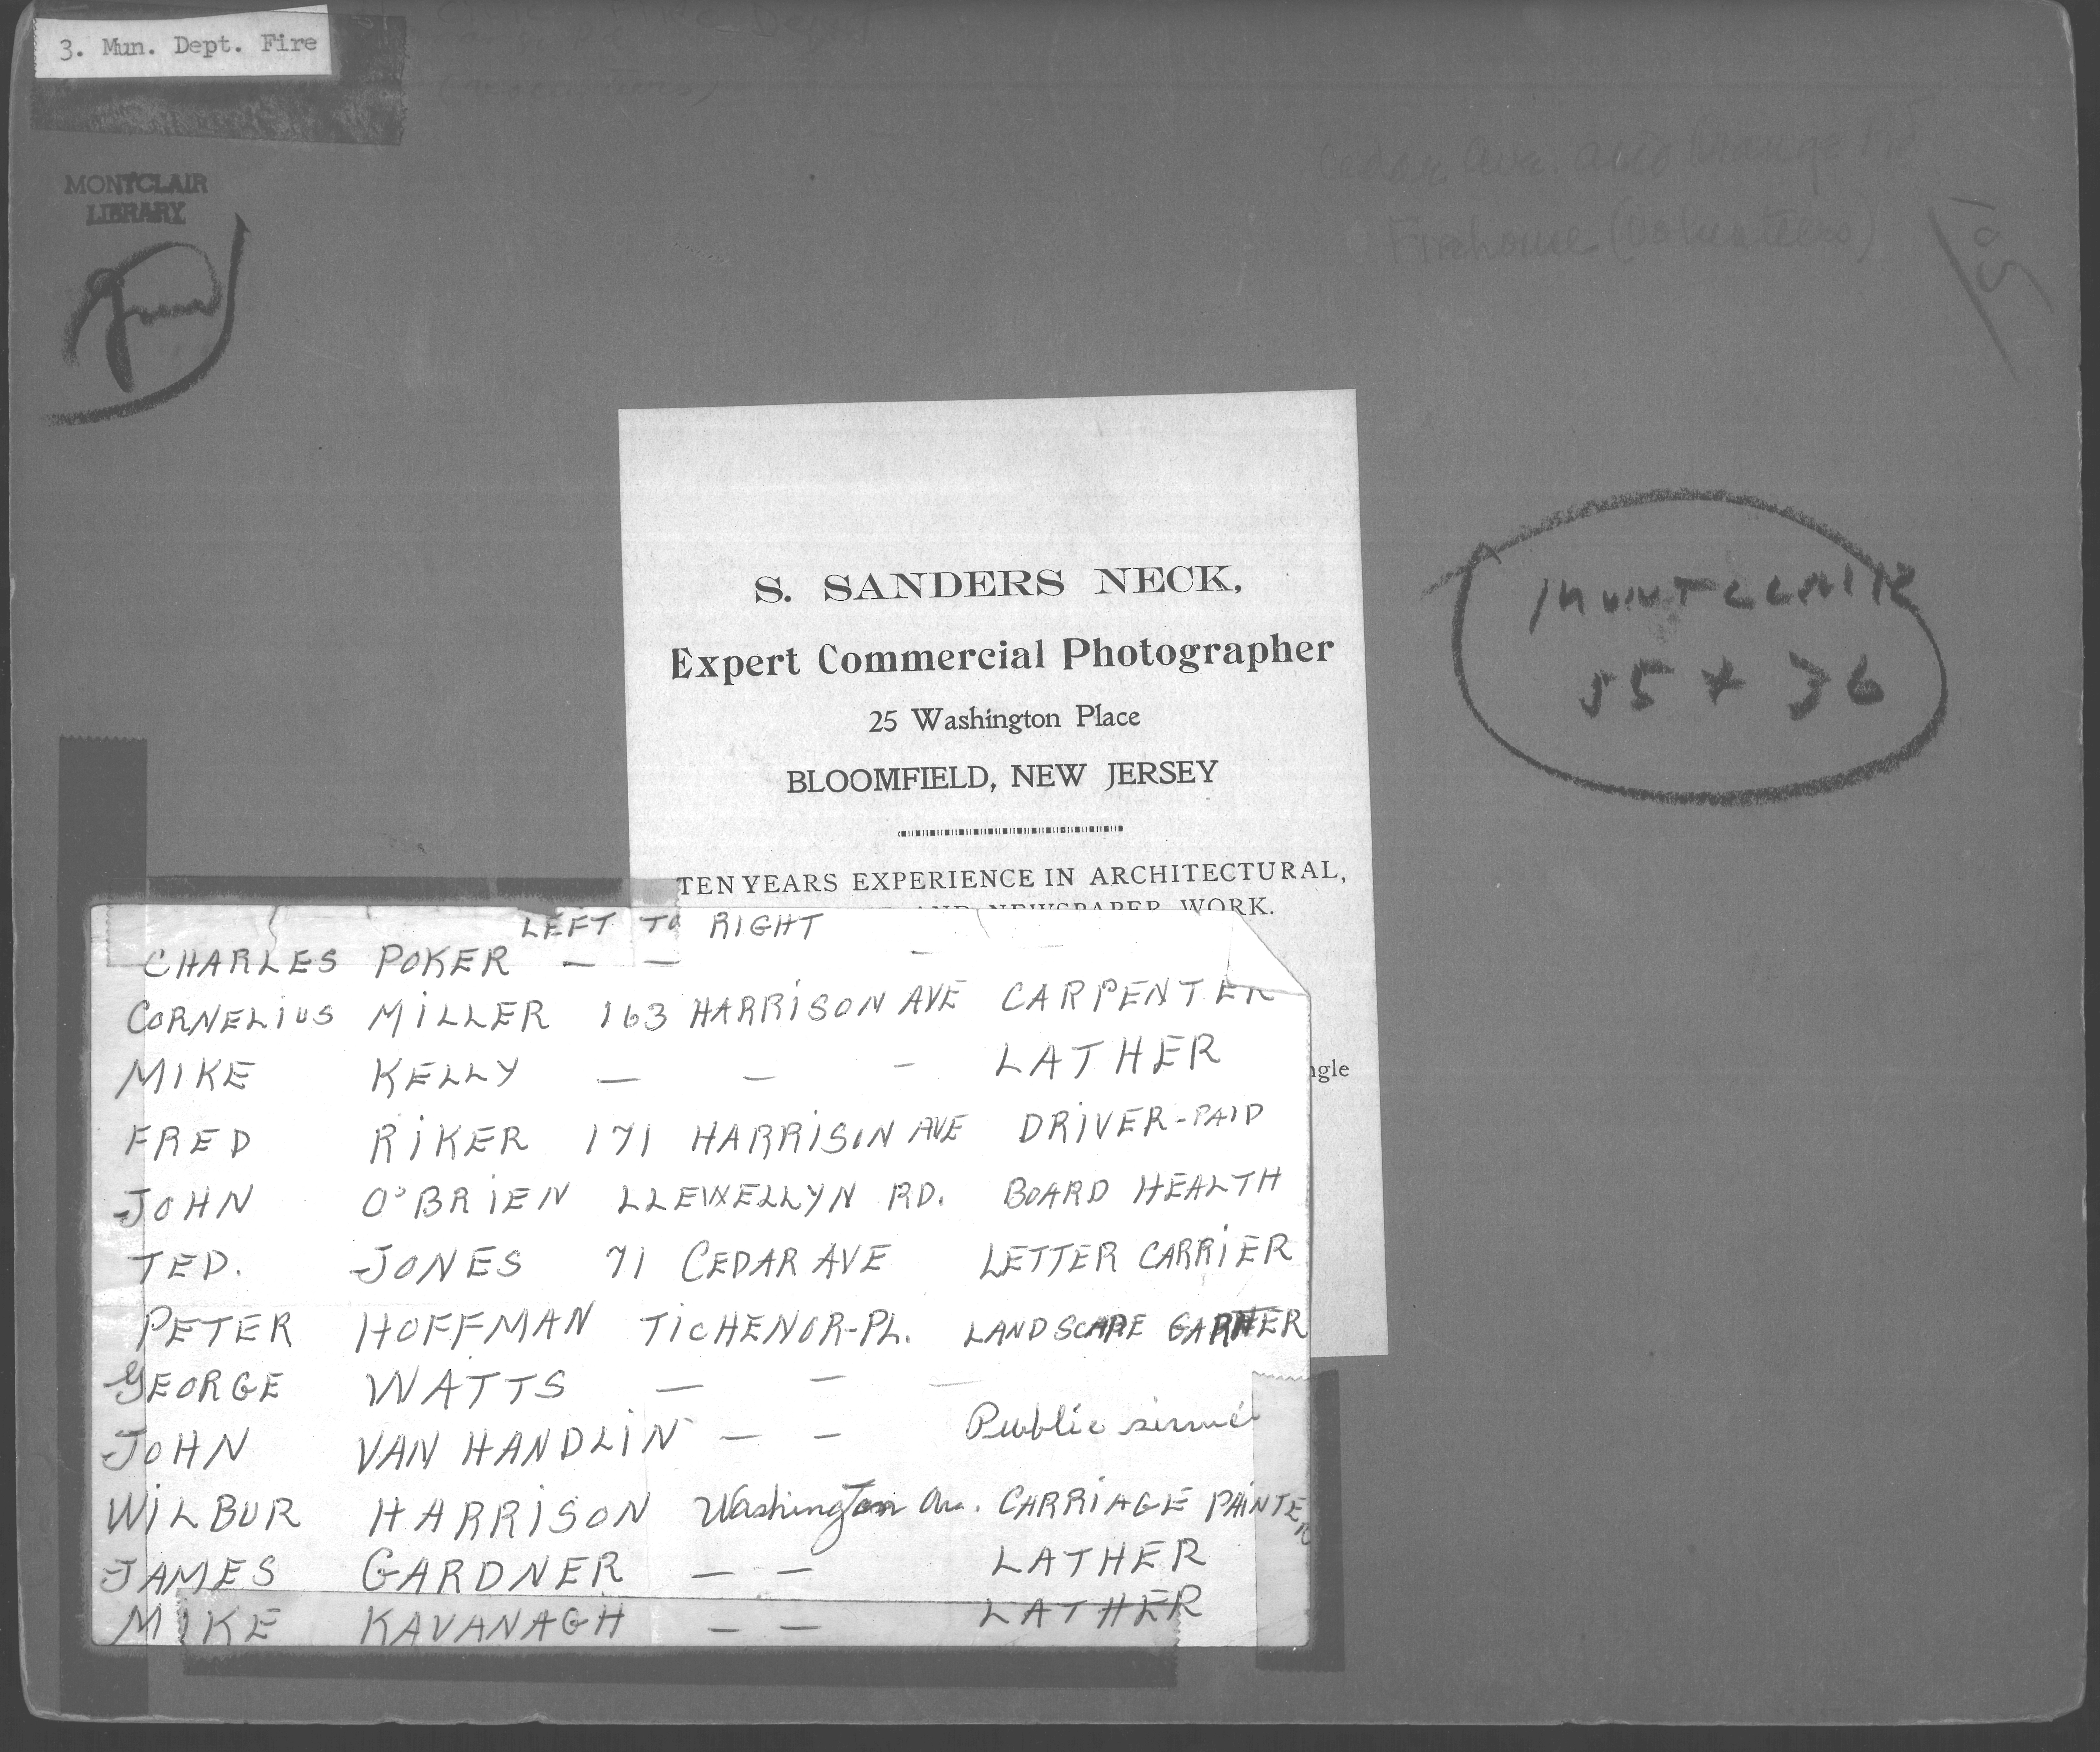 3. Mun. Dept. Fire
MONTCLAIR
LIBRARY
Cedar Ave. and Orange Rd
Firehouse (Volunteers)
MONTCLAIR
55 + 36
S. SANDERS NECK,
Expert Commercial Photographer
25 Washington Place
BLOOMFIELD, NEW JERSEY
TEN YEARS EXPERIENCE IN ARCHITECTURAL,
AND NEWSPAPER WORK.
LEFT TO RIGHT
CHARLES POKER — —
CORNELIUS MILLER 163 HARRISON AVE CARPENTER
MIKE KELLY — — - LATHER
FRED RIKER 171 HARRISON AVE DRIVER-PAID
JOHN O'BRIEN LLEWELLYN RD. BOARD HEALTH
TED. JONES 71 CEDAR AVE LETTER CARRIER
PETER HOFFMAN TICHENOR-PL. LANDSCAPE
GEORGE WATTS — — —
JOHN VAN HANDLIN — — Public
WILBUR HARRISON Washington Av. CARRIAGE PAINTER
JAMES GARDNER — — LATHER
MIKE KAVANAGH — — LATHER